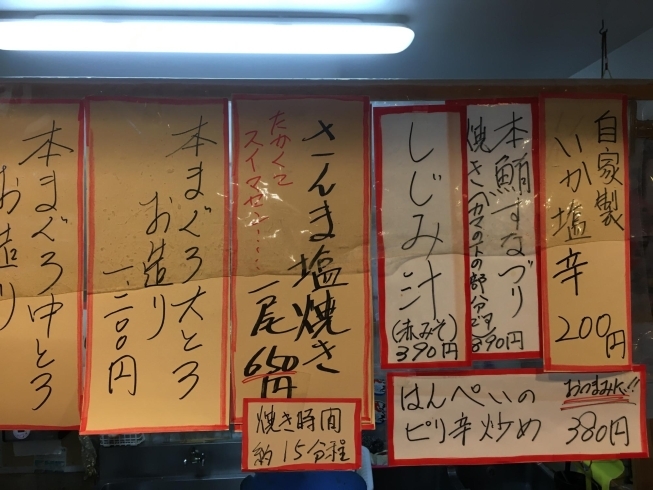 自家製
いか塩辛
200円
本鮪すなづり
390円
しじみ汁
(赤みそ)
390円
さんま塩焼き
一尾
650円
たかくて
スイマセン……
焼き時間
約15分程
本まぐろ大とろ
お造り
一、二〇〇円
本まぐろ中とろ
お造り
はんぺいの
ピリ辛炒め
おつまみに!!
380円